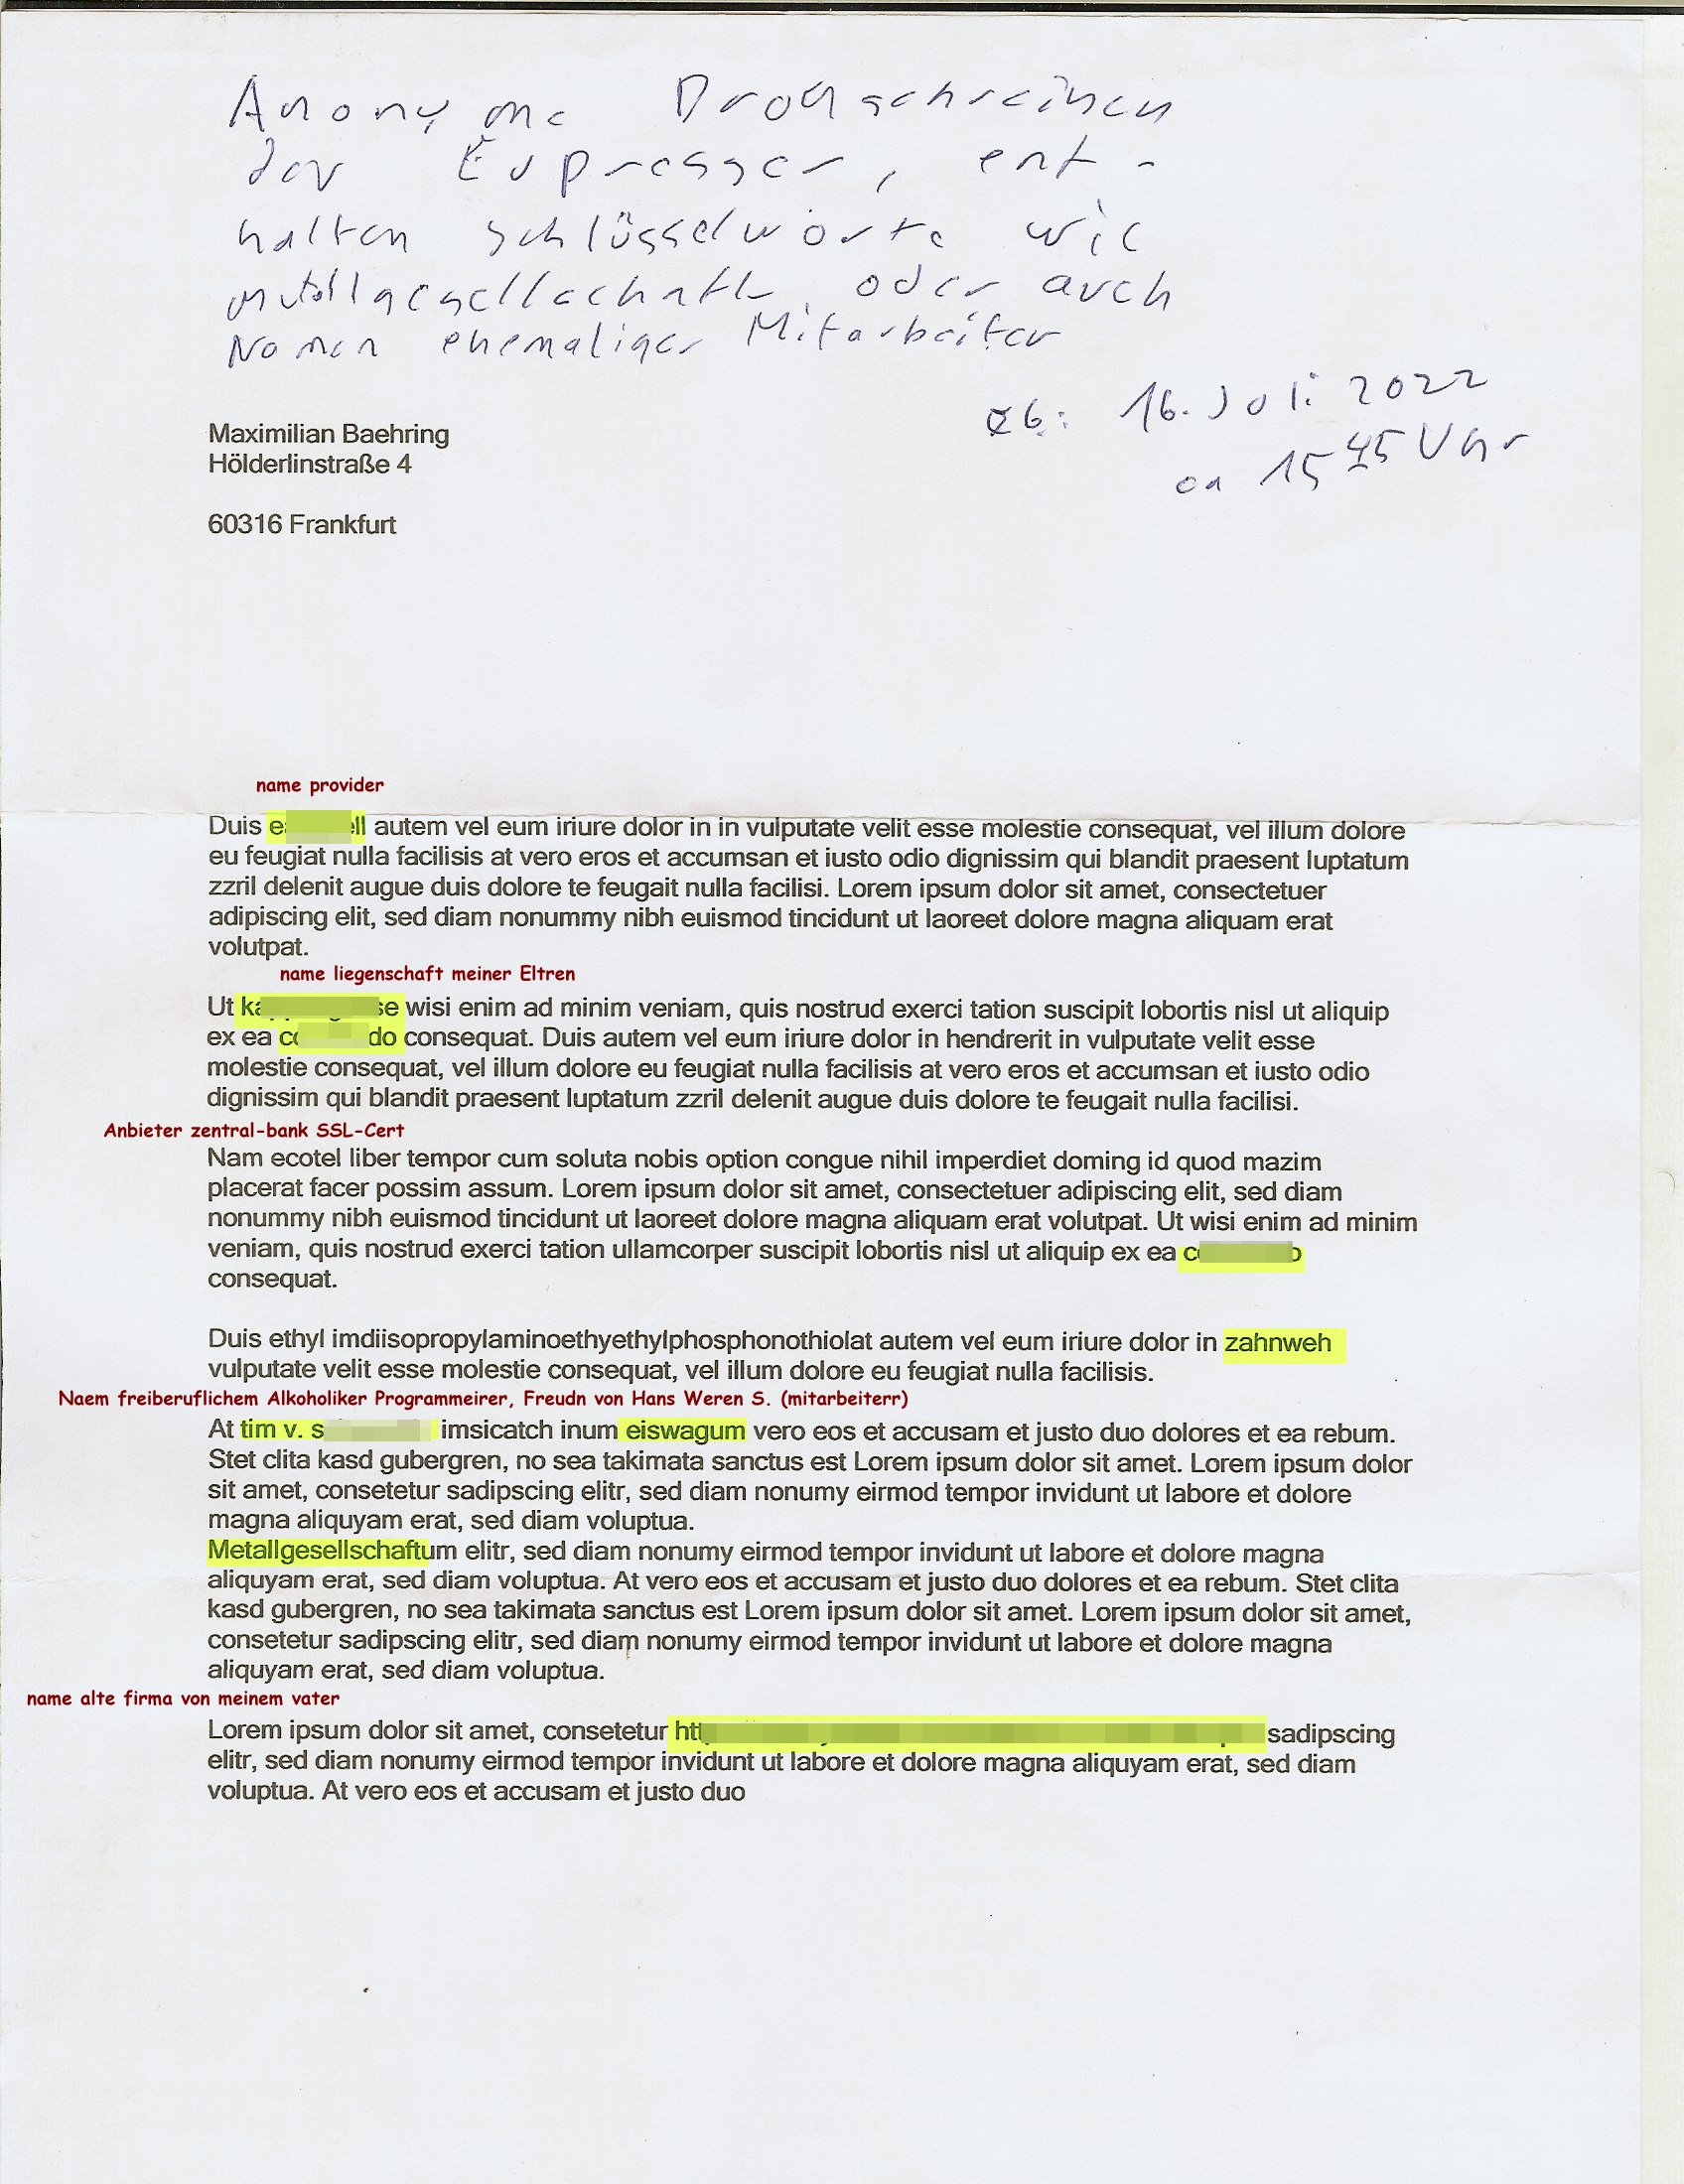 Anonyme Drohschreiben
der Erpresser, ent-
halten schlüsselworte wie
metallgesellschaft, oder auch
Namen ehemaliger Mitarbeiter
16. Juli 2022
ca 15 45 Uhr
Maximilian Baehring
Hölderlinstraße 4
60316 Frankfurt
name provider
Duis autem vel eum iriure dolor in in vulputate velit esse molestie consequat, vel illum dolore
eu feugiat nulla facilisis at vero eros et accumsan et iusto odio dignissim qui blandit praesent luptatum
zzril delenit augue duis dolore te feugait nulla facilisi. Lorem ipsum dolor sit amet, consectetuer
adipiscing elit, sed diam nonummy nibh euismod tincidunt ut laoreet dolore magna aliquam erat
volutpat.
name liegenschaft meiner Eltren
Ut wisi enim ad minim veniam, quis nostrud exerci tation suscipit lobortis nisl ut aliquip
ex ea consequat. Duis autem vel eum iriure dolor in hendrerit in vulputate velit esse
molestie consequat, vel illum dolore eu feugiat nulla facilisis at vero eros et accumsan et iusto odio
dignissim qui blandit praesent luptatum zzril delenit augue duis dolore te feugait nulla facilisi.
Anbieter zentral-bank SSL-Cert
Nam ecotel liber tempor cum soluta nobis option congue nihil imperdiet doming id quod mazim
placerat facer possim assum. Lorem ipsum dolor sit amet, consectetuer adipiscing elit, sed diam
nonummy nibh euismod tincidunt ut laoreet dolore magna aliquam erat volutpat. Ut wisi enim ad minim
veniam, quis nostrud exerci tation ullamcorper suscipit lobortis nisl ut aliquip ex ea
consequat.
Duis ethyl imdiisopropylaminoethyethylphosphonothiolat autem vel eum iriure dolor in zahnweh
vulputate velit esse molestie consequat, vel illum dolore eu feugiat nulla facilisis.
Naem freiberuflichem Alkoholiker Programmeirer, Freudn von Hans Weren S. (mitarbeiterr)
At tim v. imsicatch inum eiswagum vero eos et accusam et justo duo dolores et ea rebum.
Stet clita kasd gubergren, no sea takimata sanctus est Lorem ipsum dolor sit amet. Lorem ipsum dolor
sit amet, consetetur sadipscing elitr, sed diam nonumy eirmod tempor invidunt ut labore et dolore
magna aliquyam erat, sed diam voluptua.
Metallgesellschaftum elitr, sed diam nonumy eirmod tempor invidunt ut labore et dolore magna
aliquyam erat, sed diam voluptua. At vero eos et accusam et justo duo dolores et ea rebum. Stet clita
kasd gubergren, no sea takimata sanctus est Lorem ipsum dolor sit amet. Lorem ipsum dolor sit amet,
consetetur sadipscing elitr, sed diam nonumy eirmod tempor invidunt ut labore et dolore magna
aliquyam erat, sed diam voluptua.
name alte firma von meinem vater
Lorem ipsum dolor sit amet, consetetur sadipscing
elitr, sed diam nonumy eirmod tempor invidunt ut labore et dolore magna aliquyam erat, sed diam
voluptua. At vero eos et accusam et justo duo